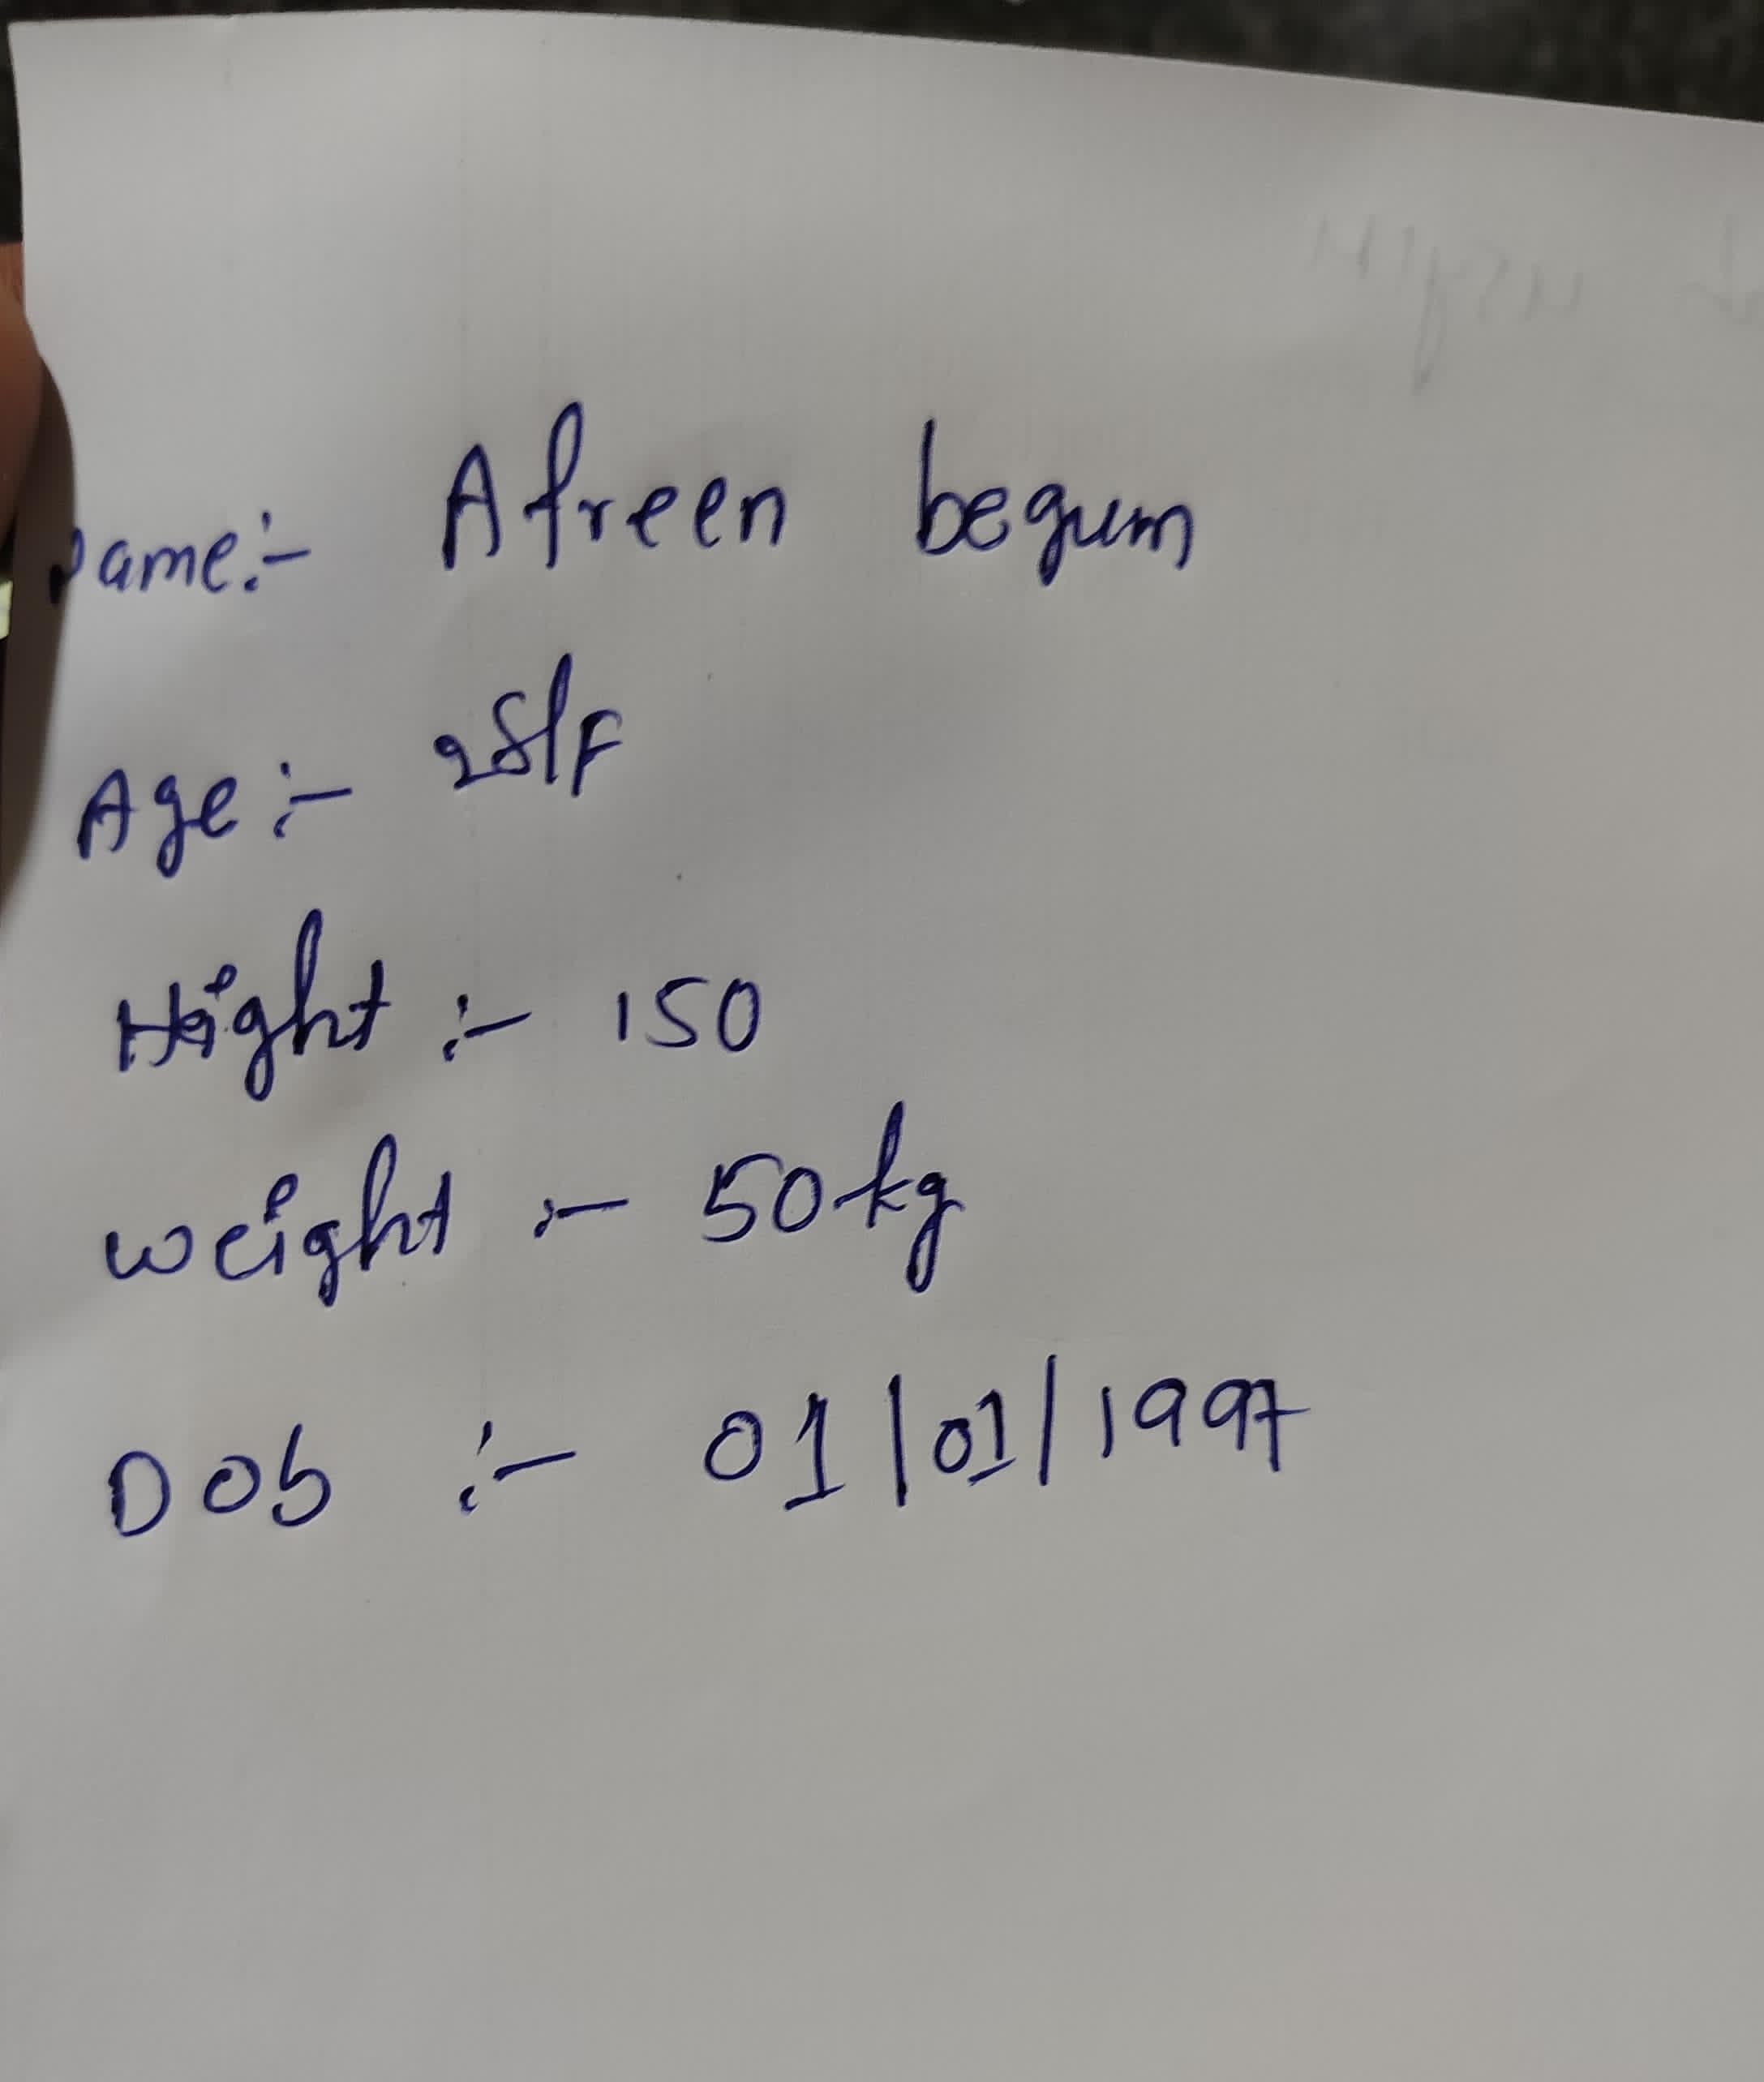 Name:- Afreen begum
Age:- 28/F
Height:- 150
weight:- 50kg
DOb:- 01/01/1997